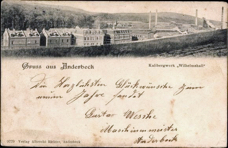 Gruss aus Anderbeck
Kalibergwerk "Wilhelmshall"
Die Herzlichsten Glückwünsche zum
neuen Jahre sendet
Gustav
Maschinenmeister
Anderbeck